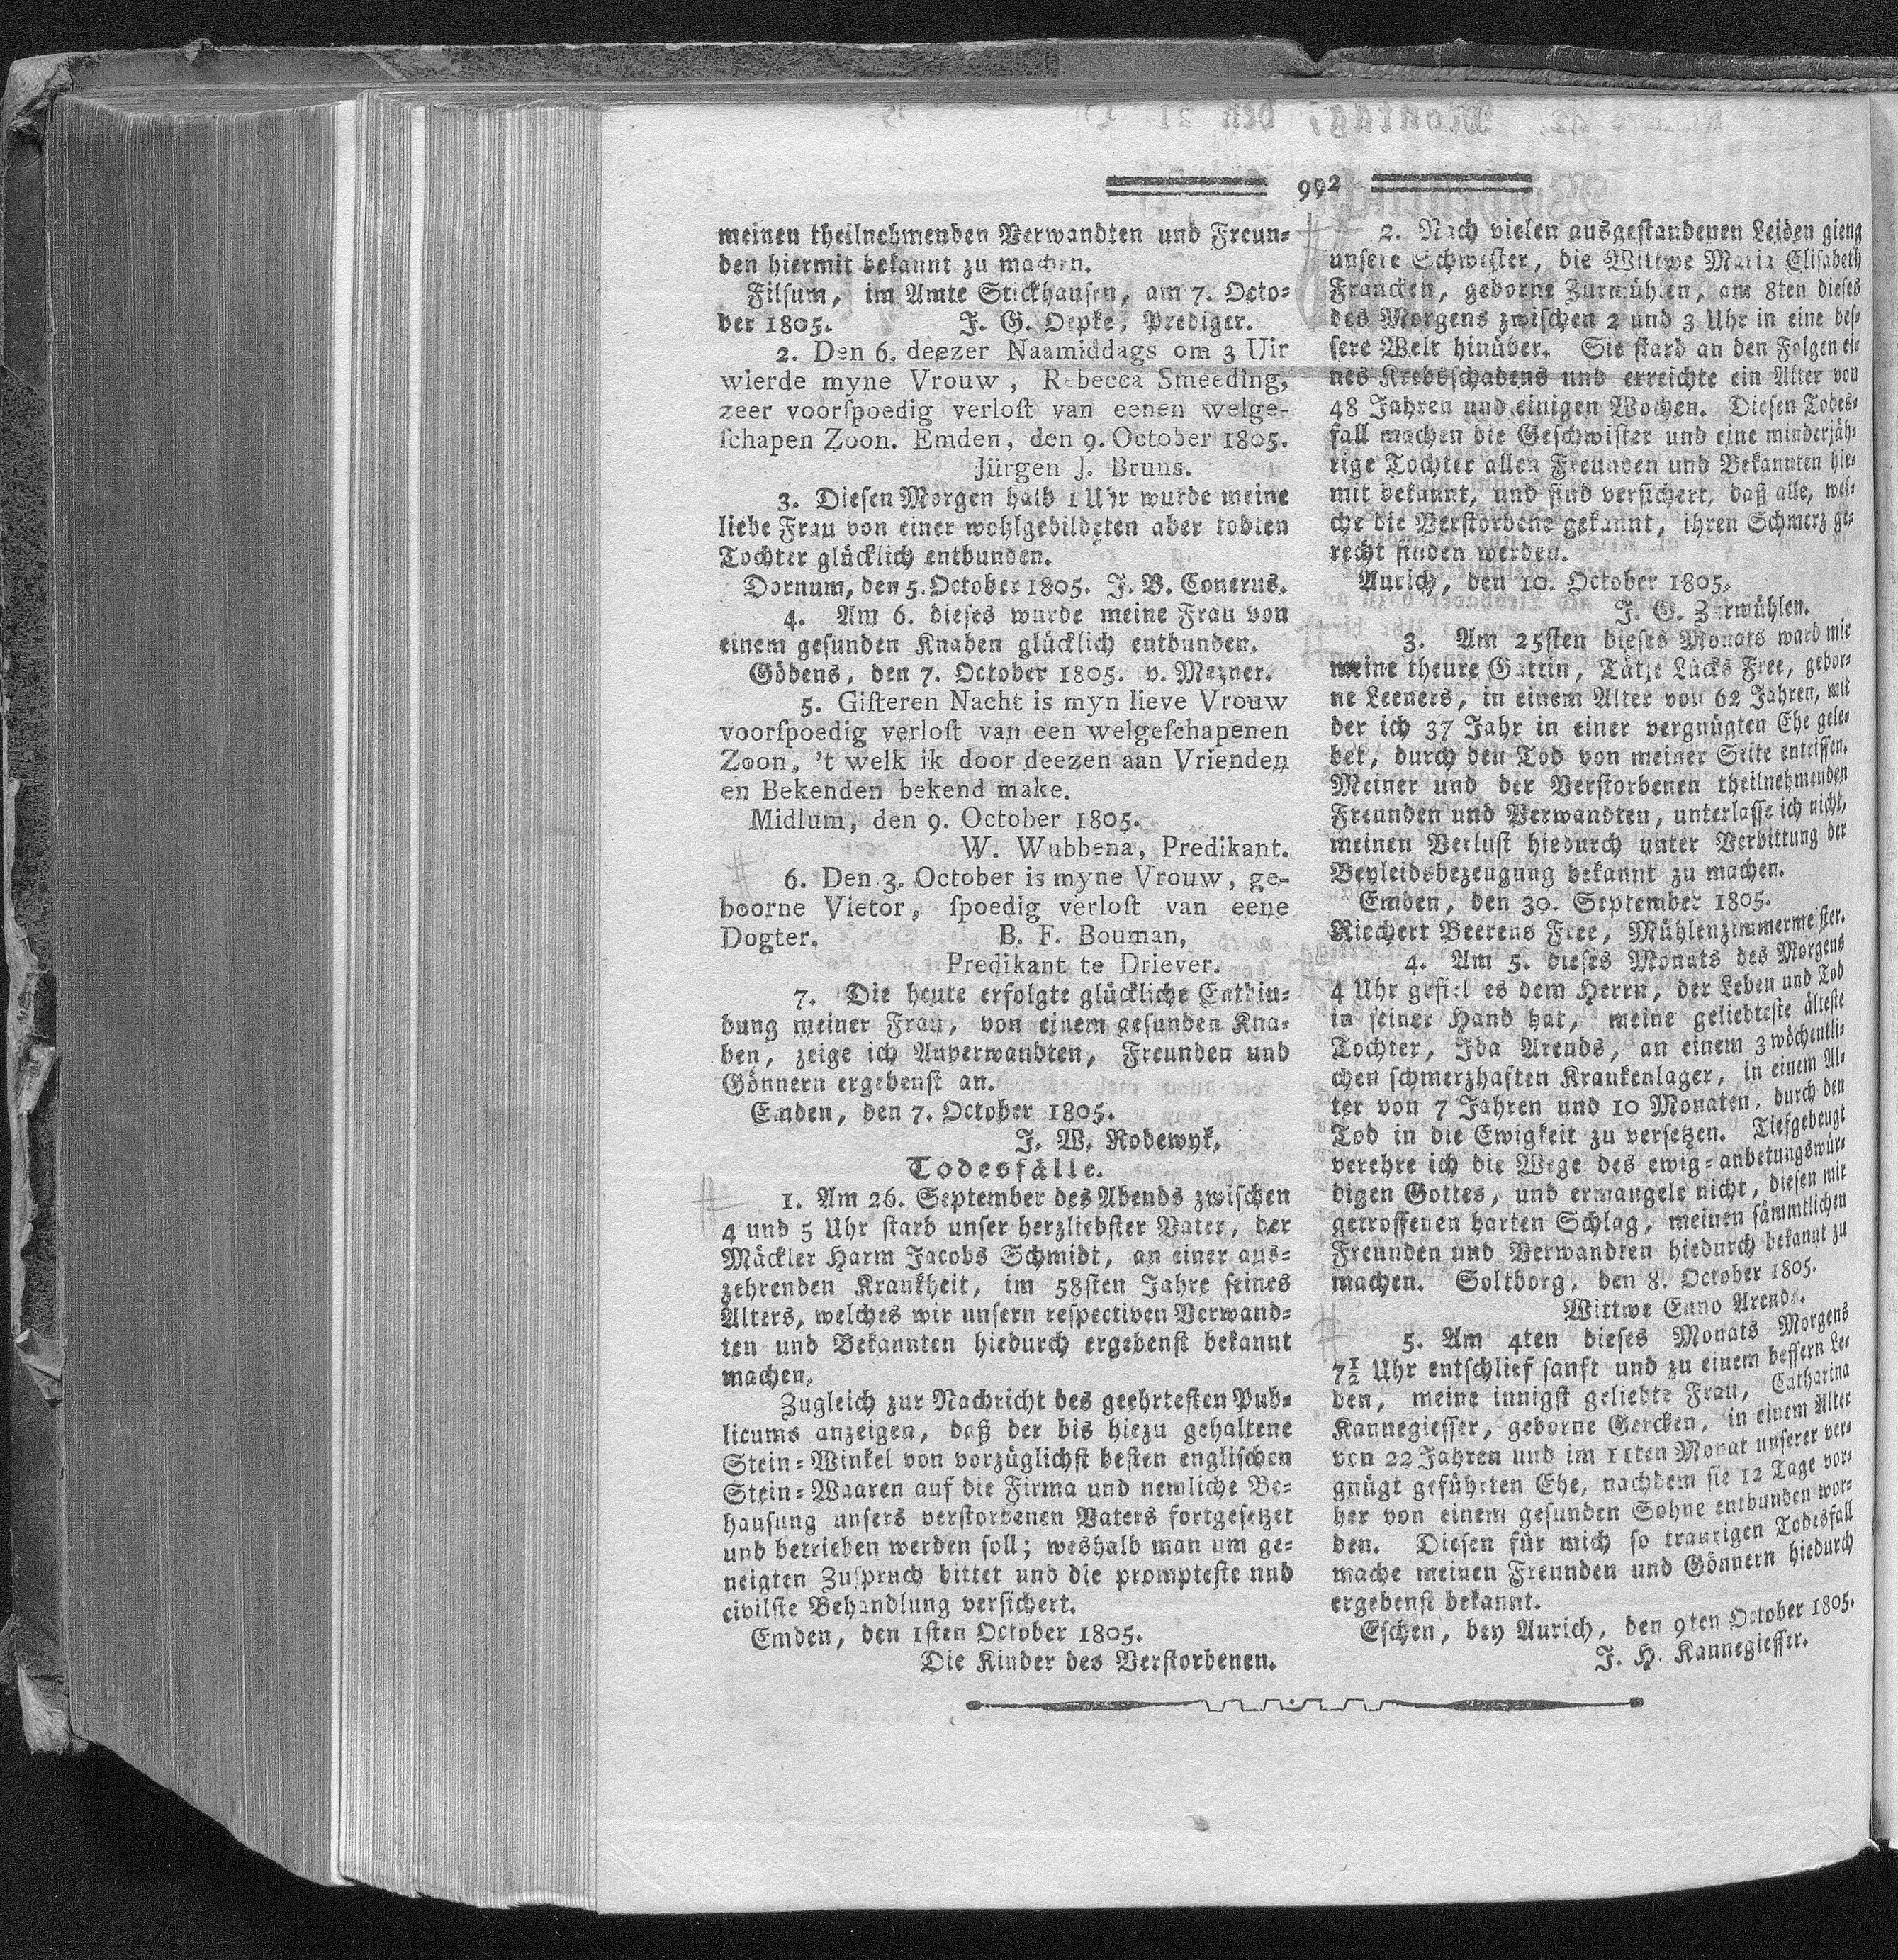 992
meinen theilnehmenden Verwandten und Freun=
den hiermit bekannt zu machen.
Filsum, im Amte Stickhausen, am 7. Octo=
ber 1805. J. G. Depke, Prediger.
2. Den 6. deezer Naamiddags om 3 Uir
wierde myne Vrouw, Rebecca Smeeding,
zeer voorſpoedig verloſt van eenen welge-
ſchapen Zoon. Emden, den 9. October 1805.
Jürgen J. Bruns.
3. Diesen Morgen halb 1 Uhr wurde meine
liebe Frau von einer wohlgebildeten aber todten
Tochter glücklich entbunden.
Dornum, den 5. October 1805. J. B. Conerus.
4. Am 6. dieses wurde meine Frau von
einem gesunden Knaben glücklich entbunden.
Gödens, den 7. October 1805. v. Mezner.
5. Giſteren Nacht is myn lieve Vrouw
voorſpoedig verloſt van een welgeſchapenen
Zoon, 't welk ik door deezen aan Vrienden
en Bekenden bekend make.
Midlum, den 9. October 1805.
W. Wubbena, Predikant.
6. Den 3. October is myne Vrouw, ge-
boorne Vietor, ſpoedig verloſt van eene
Dogter. B. F. Bouman,
Predikant te Driever.
7. Die heute erfolgte glückliche Entbin=
dung meiner Frau, von einem gesunden Kna=
ben, zeige ich Anverwandten, Freunden und
Gönnern ergebenst an.
Emden, den 7. October 1805.
J. W. Rodewyk.
Todesfälle.
1. Am 26. September des Abends zwischen
4 und 5 Uhr starb unser herzliebster Vater, der
Mäckler Harm Jacobs Schmidt, an einer aus=
zehrenden Krankheit, im 58sten Jahre seines
Alters, welches wir unsern respectiven Verwand=
ten und Bekannten hiedurch ergebenst bekannt
machen.
Zugleich zur Nachricht des geehrtesten Pub=
licums anzeigen, daß der bis hiezu gehaltene
Stein=Winkel von vorzüglichst besten englischen
Stein=Waaren auf die Firma und nemliche Be=
hausung unsers verstorbenen Vaters fortgesetzet
und betrieben werden soll; weshalb man um ge=
neigten Zuspruch bittet und die prompteste und
civilste Behandlung versichert.
Emden, den 1sten October 1805.
Die Kinder des Verstorbenen.
2. Nach vielen ausgestandenen Leiden gieng
unsere Schwester, die Wittwe Maria Elisabeth
Francken, geborne Zurmühlen, am 8ten dieses
des Morgens zwischen 2 und 3 Uhr in eine bes=
sere Welt hinüber. Sie starb an den Folgen ei=
nes Krebsschadens und erreichte ein Alter von
48 Jahren und einigen Wochen. Diesen Todes=
fall machen die Geschwister und eine minderjäh=
rige Tochter allen Freunden und Bekannten hie=
mit bekannt, und sind versichert, daß alle, wel=
che die Verstorbene gekannt, ihren Schmerz ge=
recht finden werden.
Aurich, den 10. October 1805.
J. G. Zurmühlen.
3. Am 25sten dieses Monats ward mir
meine theure Gattin, Tätje Lücks Free, gebor=
ne Leeners, in einem Alter von 62 Jahren, mit
der ich 37 Jahr in einer vergnügten Ehe gele=
bet, durch den Tod von meiner Seite entrissen.
Meiner und der Verstorbenen theilnehmenden
Freunden und Verwandten, unterlasse ich nicht,
meinen Verlust hiedurch unter Verbittung der
Beyleidsbezeugung bekannt zu machen.
Emden, den 30. September 1805.
Riechert Beerens Free, Mühlenzimmermeister.
4. Am 5. dieses Monats des Morgens
4 Uhr gefiel es dem Herrn, der Leben und Tod
in seiner Hand hat, meine geliebteste älteste
Tochter, Ida Arends, an einem 3 wöchentli=
chen schmerzhaften Krankenlager, in einem Al=
ter von 7 Jahren und 10 Monaten, durch den
Tod in die Ewigkeit zu versetzen. Tiefgebeugt
verehre ich die Wege des ewig=anbetungswür=
digen Gottes, und ermangele nicht, diesen mir
getroffenen harten Schlag, meinen sämmtlichen
Freunden und Verwandten hiedurch bekannt zu
machen. Soltborg, den 8. October 1805.
Wittwe Enno Arends.
5. Am 4ten dieses Monats Morgens
7½ Uhr entschlief sanft und zu einem bessern Le=
ben, meine innigst geliebte Frau, Catharina
Kannegiesser, geborne Gercken, in einem Alter
von 22 Jahren und im 11ten Monat unserer ver=
gnügt geführten Ehe, nachdem sie 12 Tage vor=
her von einem gesunden Sohne entbunden wor=
den. Diesen für mich so traurigen Todesfall
mache meinen Freunden und Gönnern hiedurch
ergebenst bekannt.
Eschen, bey Aurich, den 9ten October 1805.
J. H. Kannegiesser.